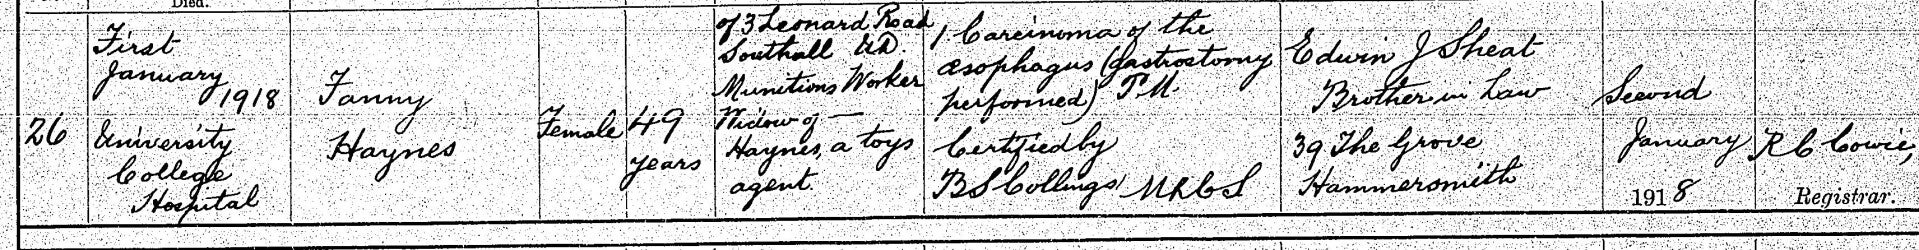 Died.
26
First
January
1918
University
College
Hospital
Fanny
Haynes
Female
49
years
of 3 Leonard Road
Southall U.D.
Munitions Worker
Widow of —
Haynes, a toys
agent.
1 Carcinoma of the
œsophagus (gastrostomy
performed) P.M.
Certified by
B S Collings MRCS
Edwin J Sheat
Brother in Law
39 The Grove
Hammersmith
Second
January
1918
R C Cowie,
Registrar.